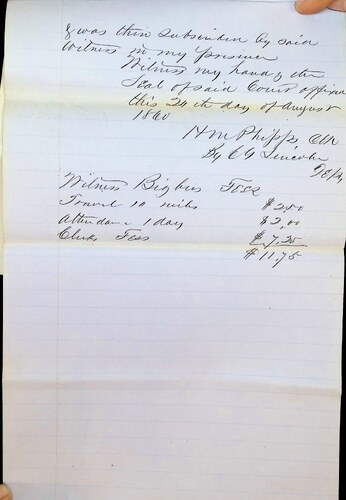 & was then subscribed by said
Witness in my presence
Witness my hand & the
Seal of said Court affixed
this 24th day of August
1860
H M Phipps, Clk
By C G Lincoln
Depy
Witness Bigbees Fees
Travel 10 miles $2.50
Attendance 1 day $2.00
Clerks Fees $7.25
$11.75